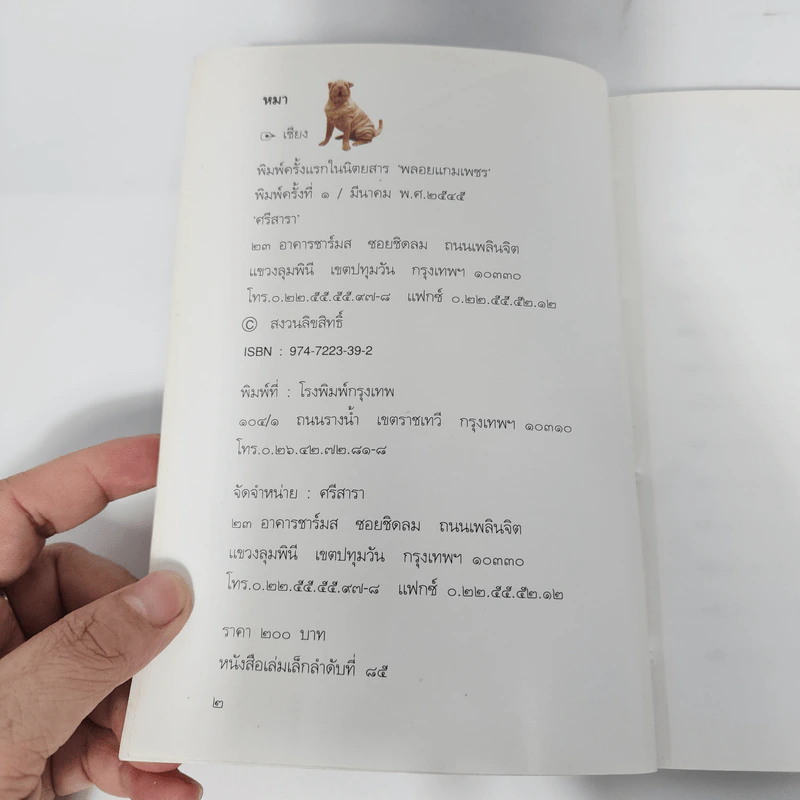 หมา
เซียง
พิมพ์ครั้งแรกในนิตยสาร 'พลอยแกมเพชร'
พิมพ์ครั้งที่ ๑ / มีนาคม พ.ศ.๒๕๔๕
'ศรีสารา'
๒๓ อาคารชาร์มส ซอยชิดลม ถนนเพลินจิต
แขวงลุมพินี เขตปทุมวัน กรุงเทพฯ ๑๐๓๓๐
โทร.๐.๒๒.๕๕.๕๕.๙๗-๘ แฟกซ์ ๐.๒๒.๕๕.๕๒.๑๒
© สงวนลิขสิทธิ์
ISBN : 974-7223-39-2
พิมพ์ที่ : โรงพิมพ์กรุงเทพ
๑๐๔/๑ ถนนรางน้ำ เขตราชเทวี กรุงเทพฯ ๑๐๓๑๐
โทร.๐.๒๖.๔๒.๗๒.๘๑-๘
จัดจำหน่าย : ศรีสารา
๒๓ อาคารชาร์มส ซอยชิดลม ถนนเพลินจิต
แขวงลุมพินี เขตปทุมวัน กรุงเทพฯ ๑๐๓๓๐
โทร.๐.๒๒.๕๕.๕๕.๙๗-๘ แฟกซ์ ๐.๒๒.๕๕.๕๒.๑๒
ราคา ๒๐๐ บาท
หนังสือเล่มเล็กลำดับที่ ๘๕
๒